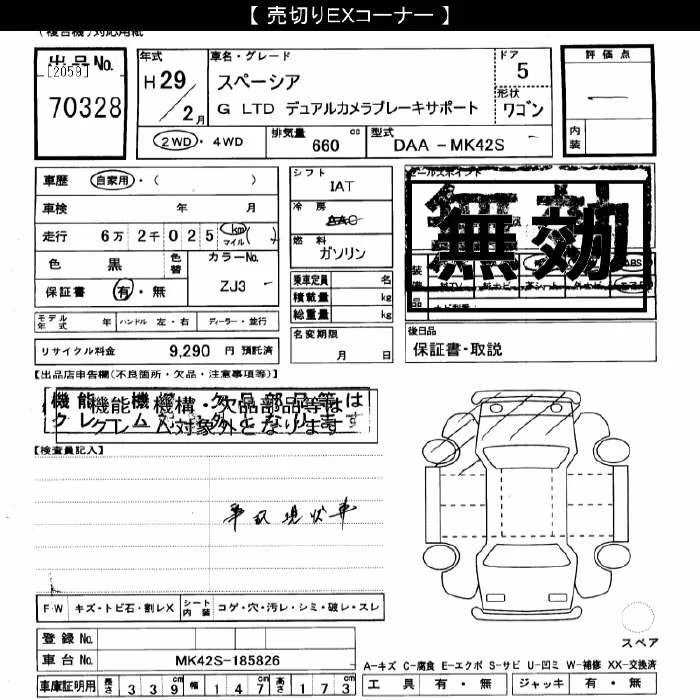 【 売切りEXコーナー 】
(複合機)対応用紙
出品No.
[2059]
70328
年式
H 29 / 2 月
車名・グレード
スペーシア
G LTD デュアルカメラブレーキサポート
ドア
5
形状
ワゴン
評価点
内装
2WD ・ 4WD
排気量 660 cc
型式 DAA - MK42S -
車歴 自家用 ・ ( )
車検 年 月
走行 6万 2千 0 2 5 km マイル ( )
色 黒 色替
カラーNo.
ZJ3 -
保証書 有 ・ 無
シフト
IAT
冷房
AAC
燃料
ガソリン
乗車定員 名
積載量 kg
総重量 kg
名変期限
月 日
セールスポイント
無効
後日品
保証書・取説
モデル年式 年 ハンドル 左・右 ディーラー・並行
リサイクル料金 9,290 円 預託済
【出品店申告欄(不良箇所・欠品・注意事項等)】
機能・機構・欠品部品等は
クレーム対象外となります
【検査員記入】
事故現状車
F・W キズ・トビ石・割レX シート内装 コゲ・穴・汚レ・シミ・破レ・スレ
登録No.
車台No. MK42S-185826
車庫証明用 長さ 3 3 9 cm 幅 1 4 7 cm 高さ 1 7 3 cm
スペア
A-キズ C-腐食 E-エクボ S-サビ U-凹ミ W-補修 XX-交換済
工具 有 ・ 無 ジャッキ 有 ・ 無